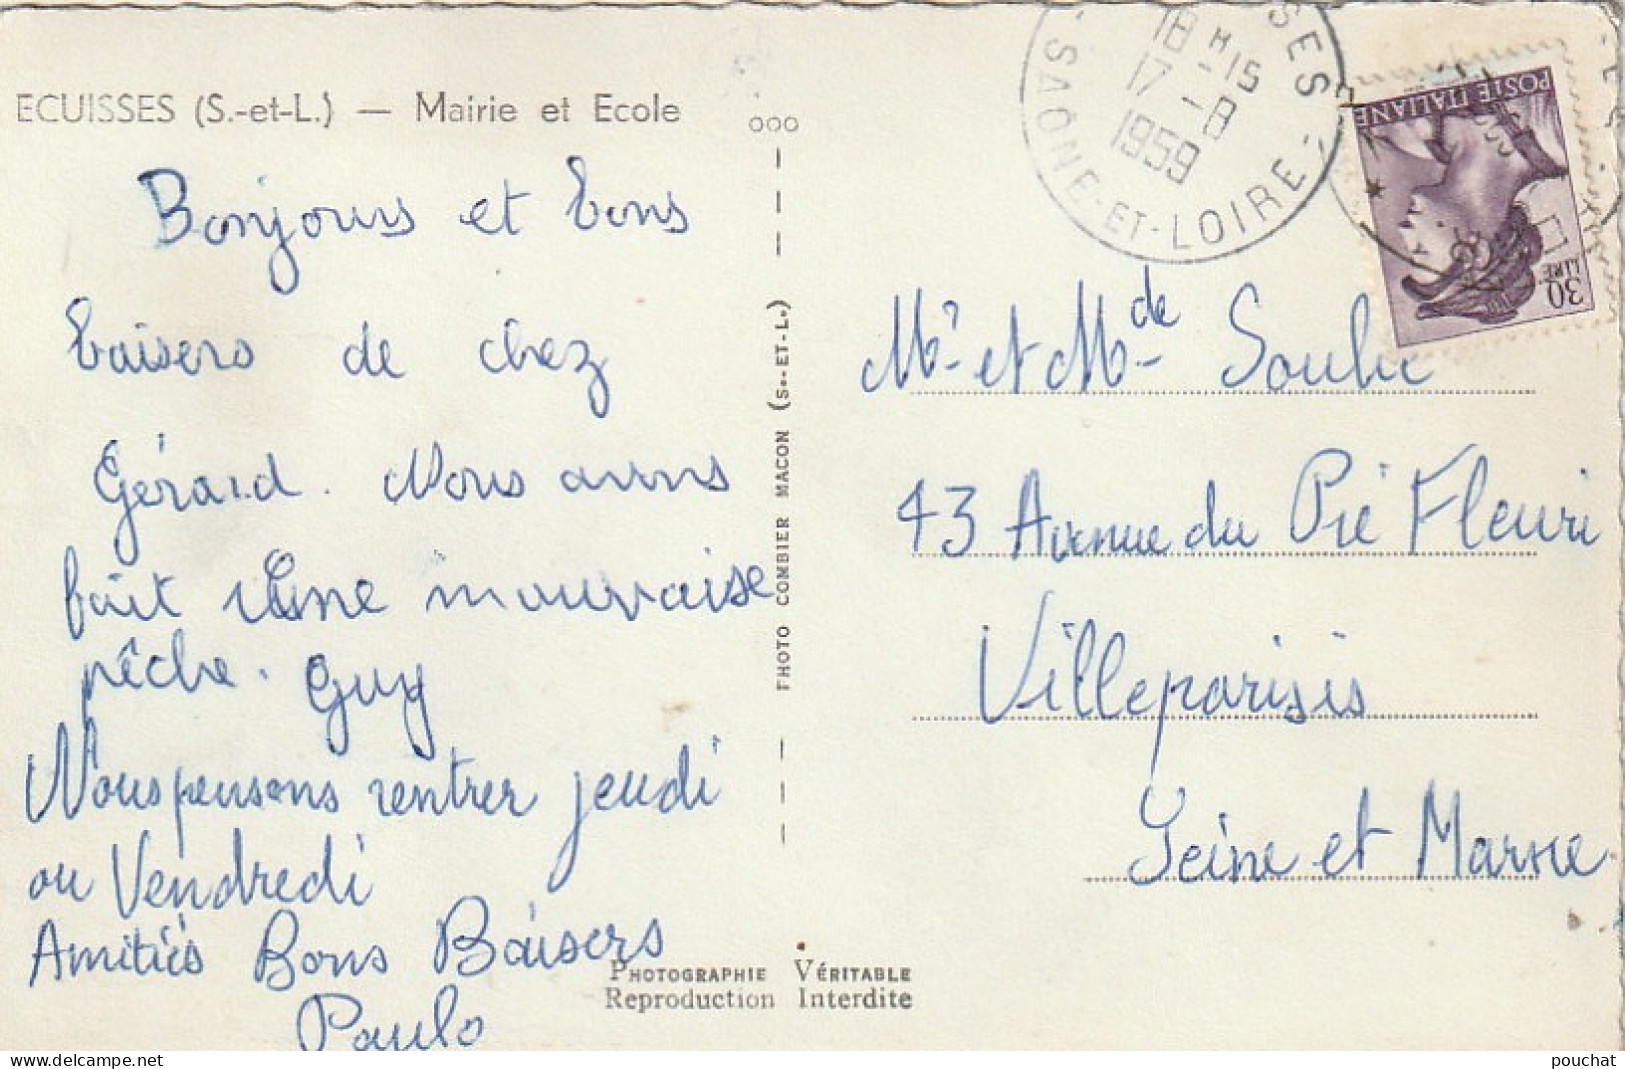 ECUISSES (S.-et-L.) — Mairie et Ecole
Bonjours et bons
baisers de chez
Gérard. Nous avons
fait une mauvaise
pêche. Guy
Nous pensons rentrer jeudi
ou Vendredi
Amitiés Bons Baisers
Paulo
PHOTO COMBIER MACON (S.-ET-L.)
PHOTOGRAPHIE VÉRITABLE
Reproduction Interdite
18 H 15
17 - 8
1959
SAÔNE-ET-LOIRE
POSTE ITALIANE
30
LIRE
Mr et Mde Soulie
43 Avenue du Pié Fleuri
Villeparisis
Seine et Marne
www.delcampe.net
pouchat